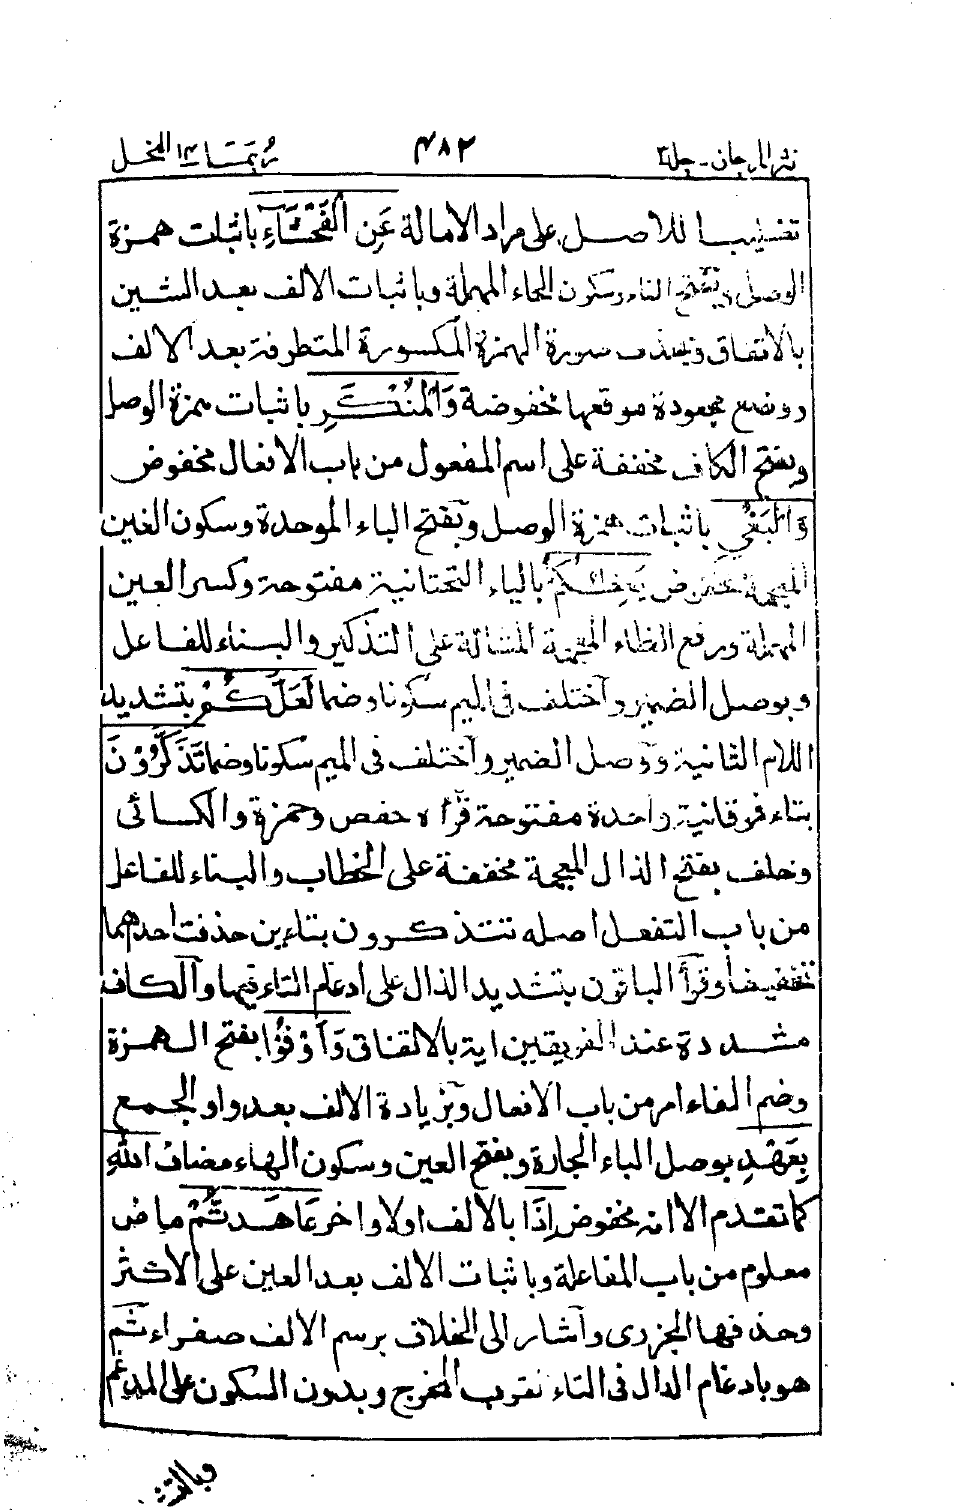 نثر المرجان - جلد ٣ ٤٨٢ ربما ١٤ النحل
تغليبا للاصل على مراد الامالة عَنِ الْفَحْشَآءِ باثبات همزة
الوصل وبفتح الفاء وسكون الحاء المهملة وباثبات الالف بعد الشين
بالاتفاق وبحذف صورة الهمزة المكسورة المتطرفة بعد الالف
ووضع مجعودة موقعها مخفوضة وَالْمُنْكَرِ باثبات همزة الوصل
وبفتح الكاف مخففة على اسم المفعول من باب الافعال مخفوض
وَالْبَغْيِ باثبات همزة الوصل وبفتح الباء الموحدة وسكون الغين
المعجمة مخفوض يَعِظُكُمْ بالياء التحتانية مفتوحة وكسر العين
المهملة ورفع الظاء المعجمة المشالة على التذكير والبناء للفاعل
وبوصل الضمير واختلف فى الميم سكونا وضما لَعَلَّكُمْ بتشديد
اللام الثانية ووصل الضمير واختلف فى الميم سكونا وضما تَذَكَّرُوْنَ
بتاء فوقانية واحدة مفتوحة قرأه حفص وحمزة والكسائى
وخلف بفتح الذال المعجمة مخففة على الخطاب والبناء للفاعل
من باب التفعل اصله تتذكرون بتاءين حذفت احدهما
تخفيفا وقرأ الباقون بتشديد الذال على ادغام التاء فيها والكاف
مشددة عند الفريقين اية بالاتفاق وَاَوْفُوْا بفتح الهمزة
وضم الفاء امر من باب الافعال وبزيادة الالف بعد واو الجمع
بِعَهْدِ بوصل الباء الجارة وبفتح العين وسكون الهاء مضاف اللهِ
كما تقدم الا انه مخفوض اِذَا بالالف اولا واخر عَاهَدتُّمْ ماض
معلوم من باب المفاعلة وباثبات الالف بعد العين على الاكثر
وحذفها الجزرى واشار الى الخلاف برسم الالف صفراء ثم
هو بادغام الدال فى التاء لقرب المخرج وبدون السكون على المدغم